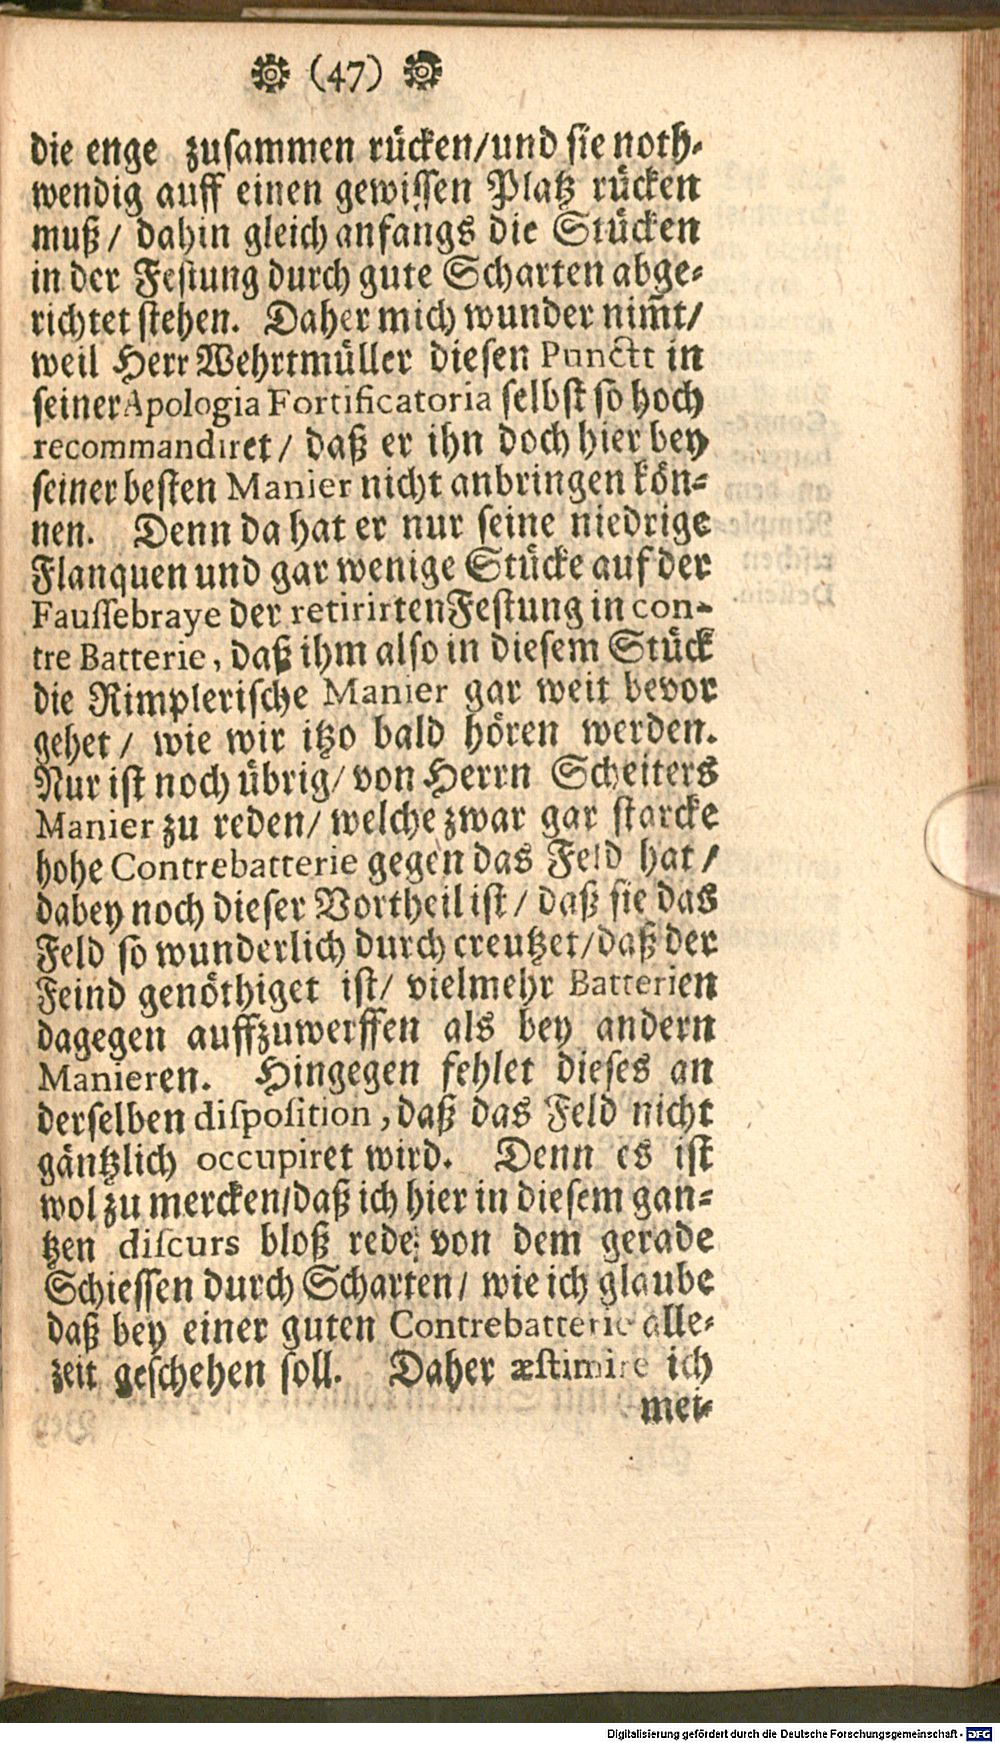 (47)
die enge zusammen rücken/und sie noth-
wendig auff einen gewissen Platz rücken
muß/ dahin gleich anfangs die Stücken
in der Festung durch gute Scharten abge-
richtet stehen. Daher mich wunder nim̃t/
weil Herr Wehrtmüller diesen Punctt in
seiner Apologia Fortificatoria selbst so hoch
recommandiret/ daß er ihn doch hier bey
seiner besten Manier nicht anbringen kön-
nen. Denn da hat er nur seine niedrige
Flanquen und gar wenige Stücke auf der
Faussebraye der retirirten Festung in con-
tre Batterie, daß ihm also in diesem Stück
die Rimplerische Manier gar weit bevor
gehet/ wie wir itzo bald hören werden.
Nur ist noch übrig/ von Herrn Scheiters
Manier zu reden/ welche zwar gar starcke
hohe Contrebatterie gegen das Feld hat/
dabey noch dieser Vortheil ist/ daß sie das
Feld so wunderlich durch creutzet/daß der
Feind genöthiget ist/ vielmehr Batterien
dagegen auffzuwerffen als bey andern
Manieren. Hingegen fehlet dieses an
derselben disposition, daß das Feld nicht
gäntzlich occupiret wird. Denn es ist
wol zu mercken/daß ich hier in diesem gan-
tzen discurs bloß rede von dem gerade
Schiessen durch Scharten/ wie ich glaube
daß bey einer guten Contrebatterie alle-
zeit geschehen soll. Daher æstimire ich
mei-
Digitalisierung gefördert durch die Deutsche Forschungsgemeinschaft - DFG